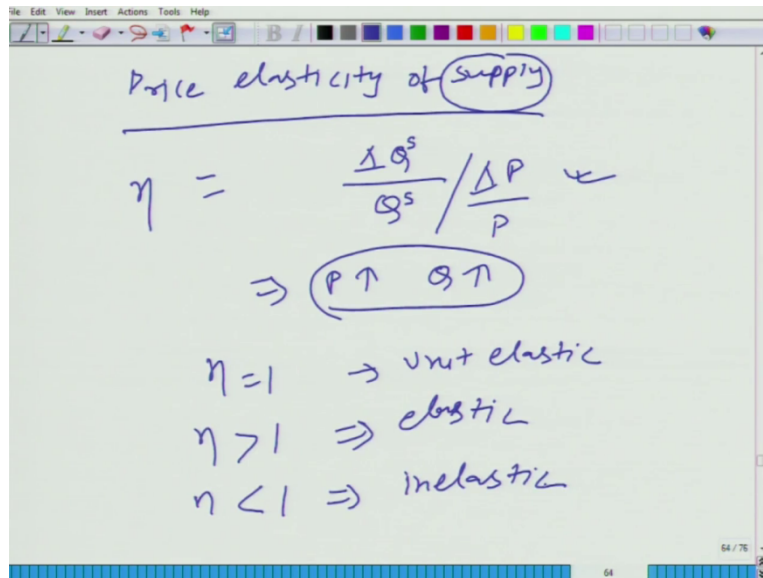 File Edit View Insert Actions Tools Help
B I
Price elasticity of supply
η = ΔQˢ/Qˢ / ΔP/P
⇒ P↑ Q↑
η = 1 → unit elastic
η > 1 ⇒ elastic
η < 1 ⇒ inelastic
64 / 76
64